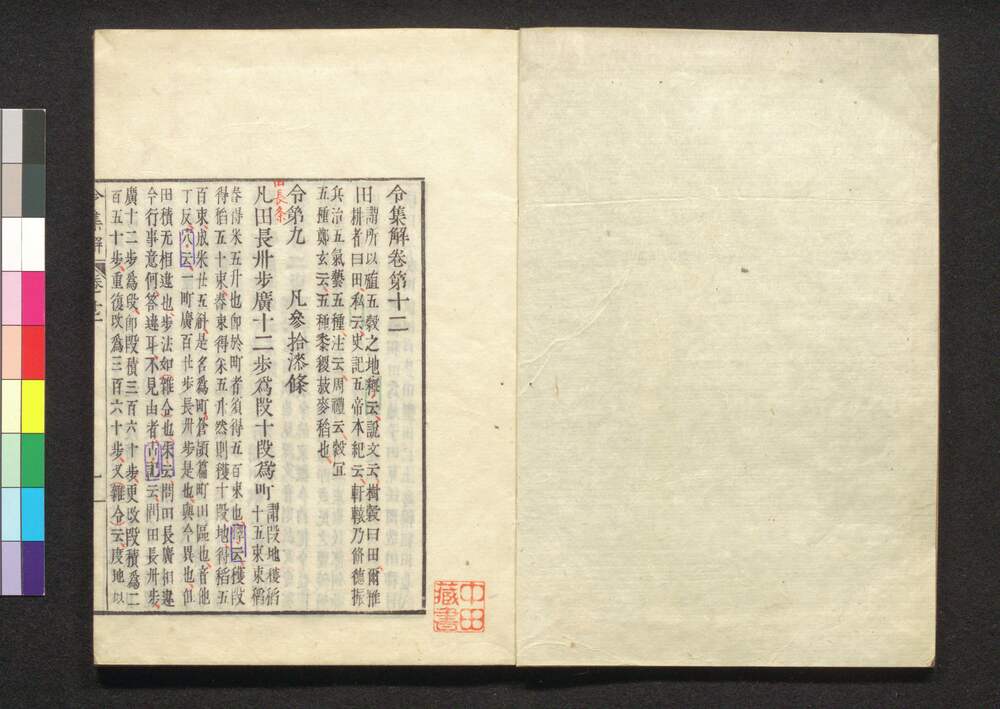 令集解卷第十二
田謂所以殖五穀之地釋云說文云樹穀曰田爾雅
田耕者曰田私云史記五帝本紀云軒轅乃脩德振
兵治五氣藝五種注云周禮云穀宜
五種鄭玄云五種黍稷菽麥稻也
令第九 凡參拾漆條
田長条
凡田長卅步廣十二步為段十段為町謂段地穫稻
十五束束稻
舂得米五升也卽於町者須得五百束也釋云穫段
得稻五十束舂束得米五升然則穫十段地得稻五
百束成米廿五斛是名為町倉頡篇町田區也音他
丁反穴云一町廣百廿步長卅步是也與今異也但
田積无相違也步法如雜令也朱云問田長廣相違
今行事意何答違耳不見由者古記云問田長卅步
廣十二步為段卽段積三百六十步更改段積為二
百五十步重復改為三百六十步又雜令云度地以
令集解 卷十二 一
中田藏書